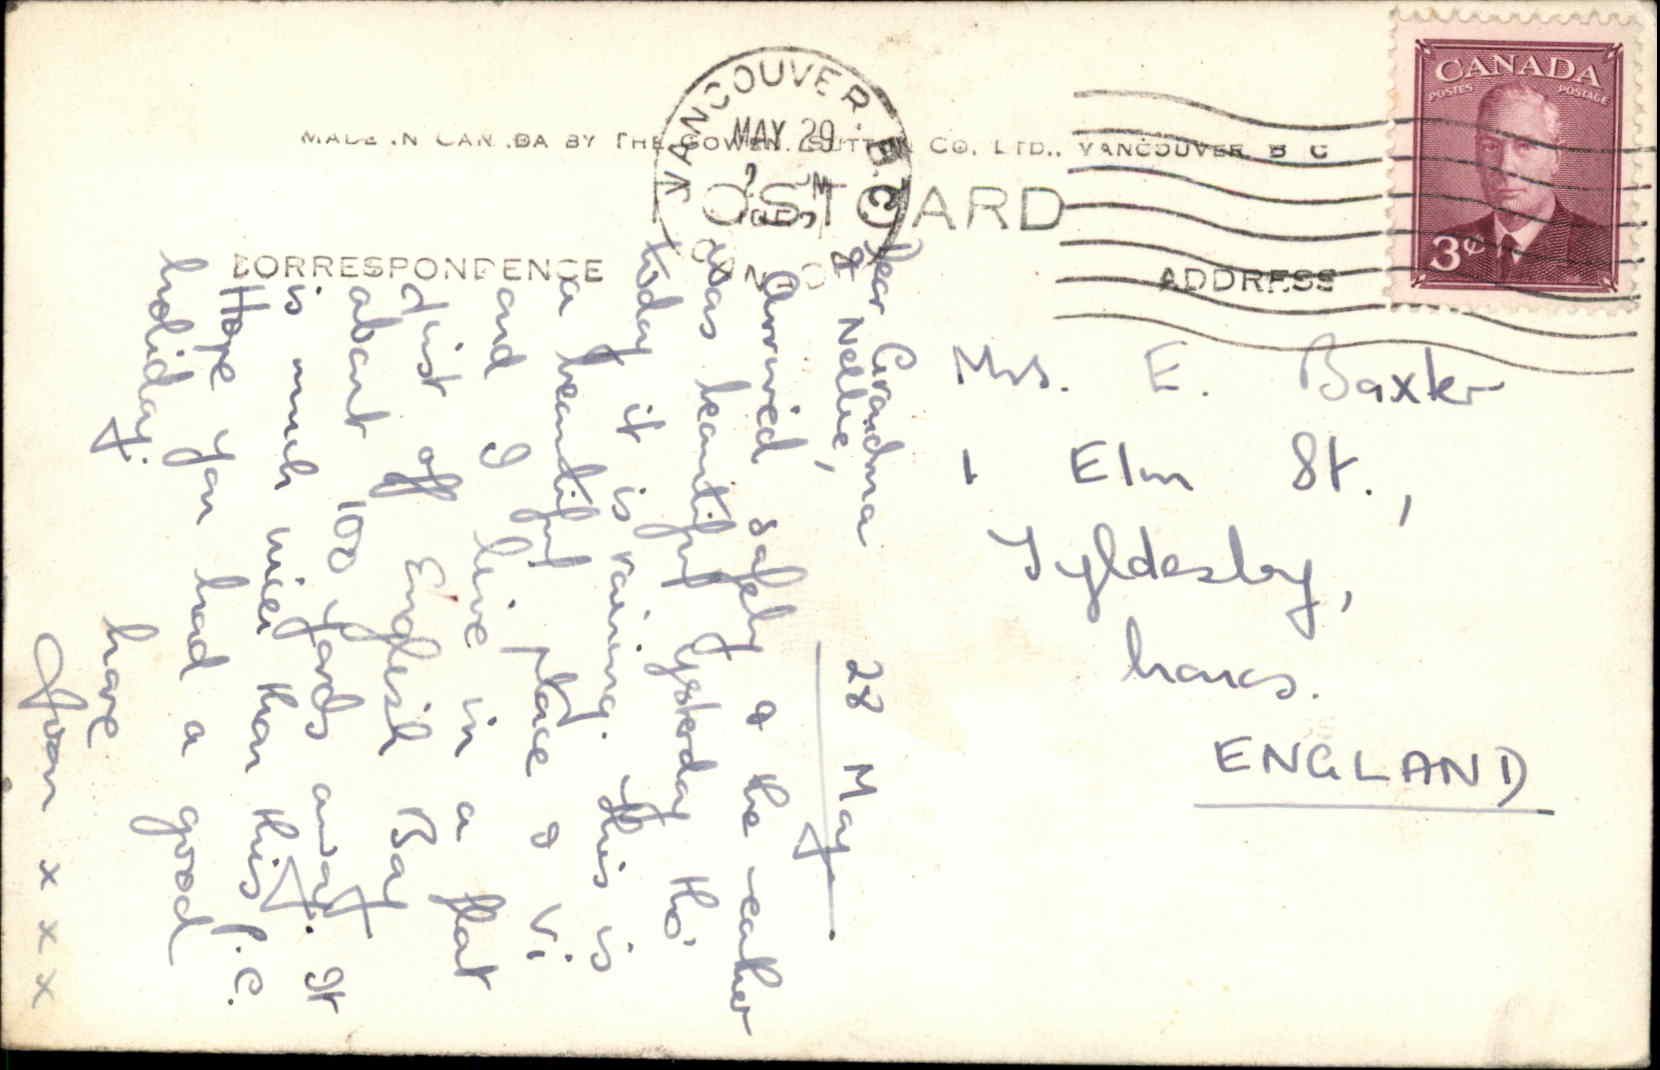 MADE IN CANADA BY THE GOWEN, SUTTON CO. LTD., VANCOUVER B C
VANCOUVER B.C.
MAY 29
POSTCARD
CANADA
POSTES POSTAGE
3¢
CORRESPONDENCE
ADDRESS
28 May
Dear Grandma
& Nellie,
Arrived safely & the weather
was beautiful yesterday tho'
today it is raining. This is
a beautiful place & V.
and I live in a flat
just off English Bay
about 100 yards away. It
is much nicer than this P.C.
Hope you had a good
holiday.
love
Joan x x x
Mrs. E. Baxter
1 Elm St.,
Tyldesley,
Lancs.
ENGLAND